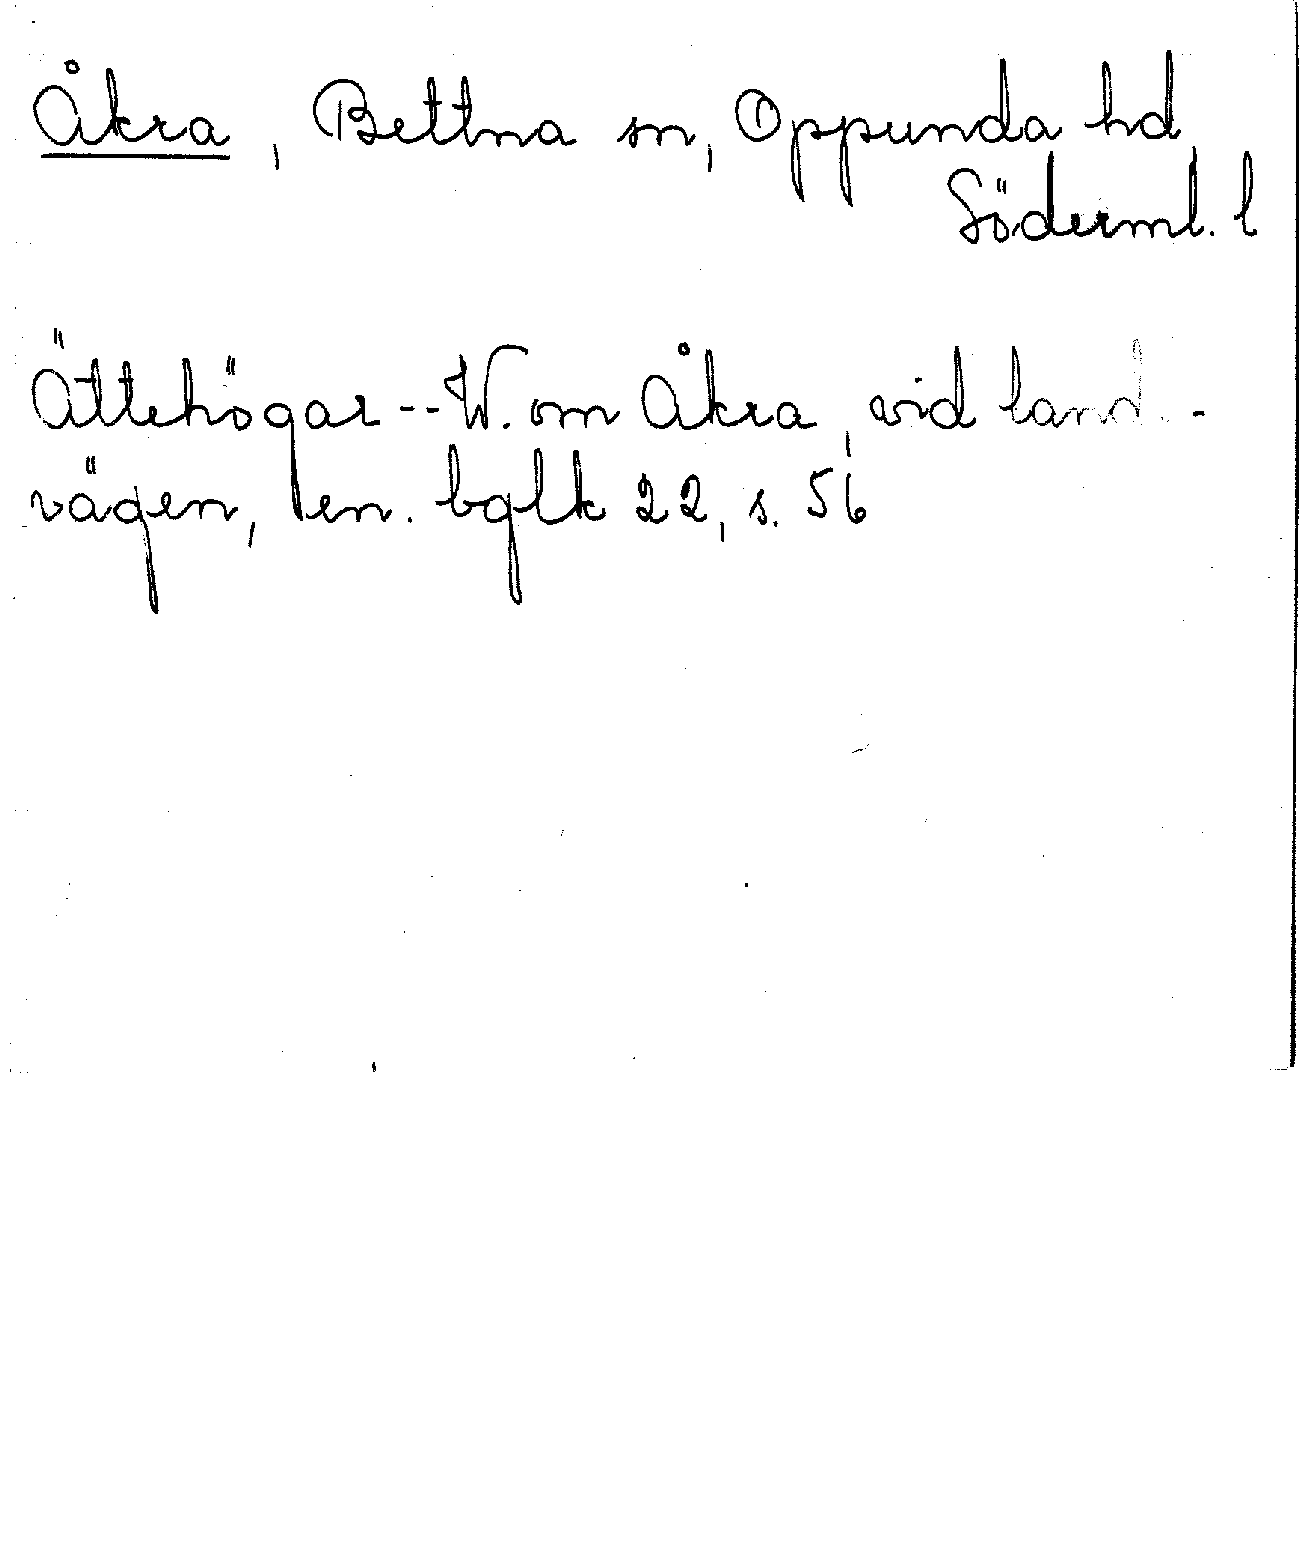 Åkra, Bettna sn, Oppunda hd
Söderml. l
Ättehögar -- W. om Åkra, vid lands-
vägen, en. bglk 22, s. 56